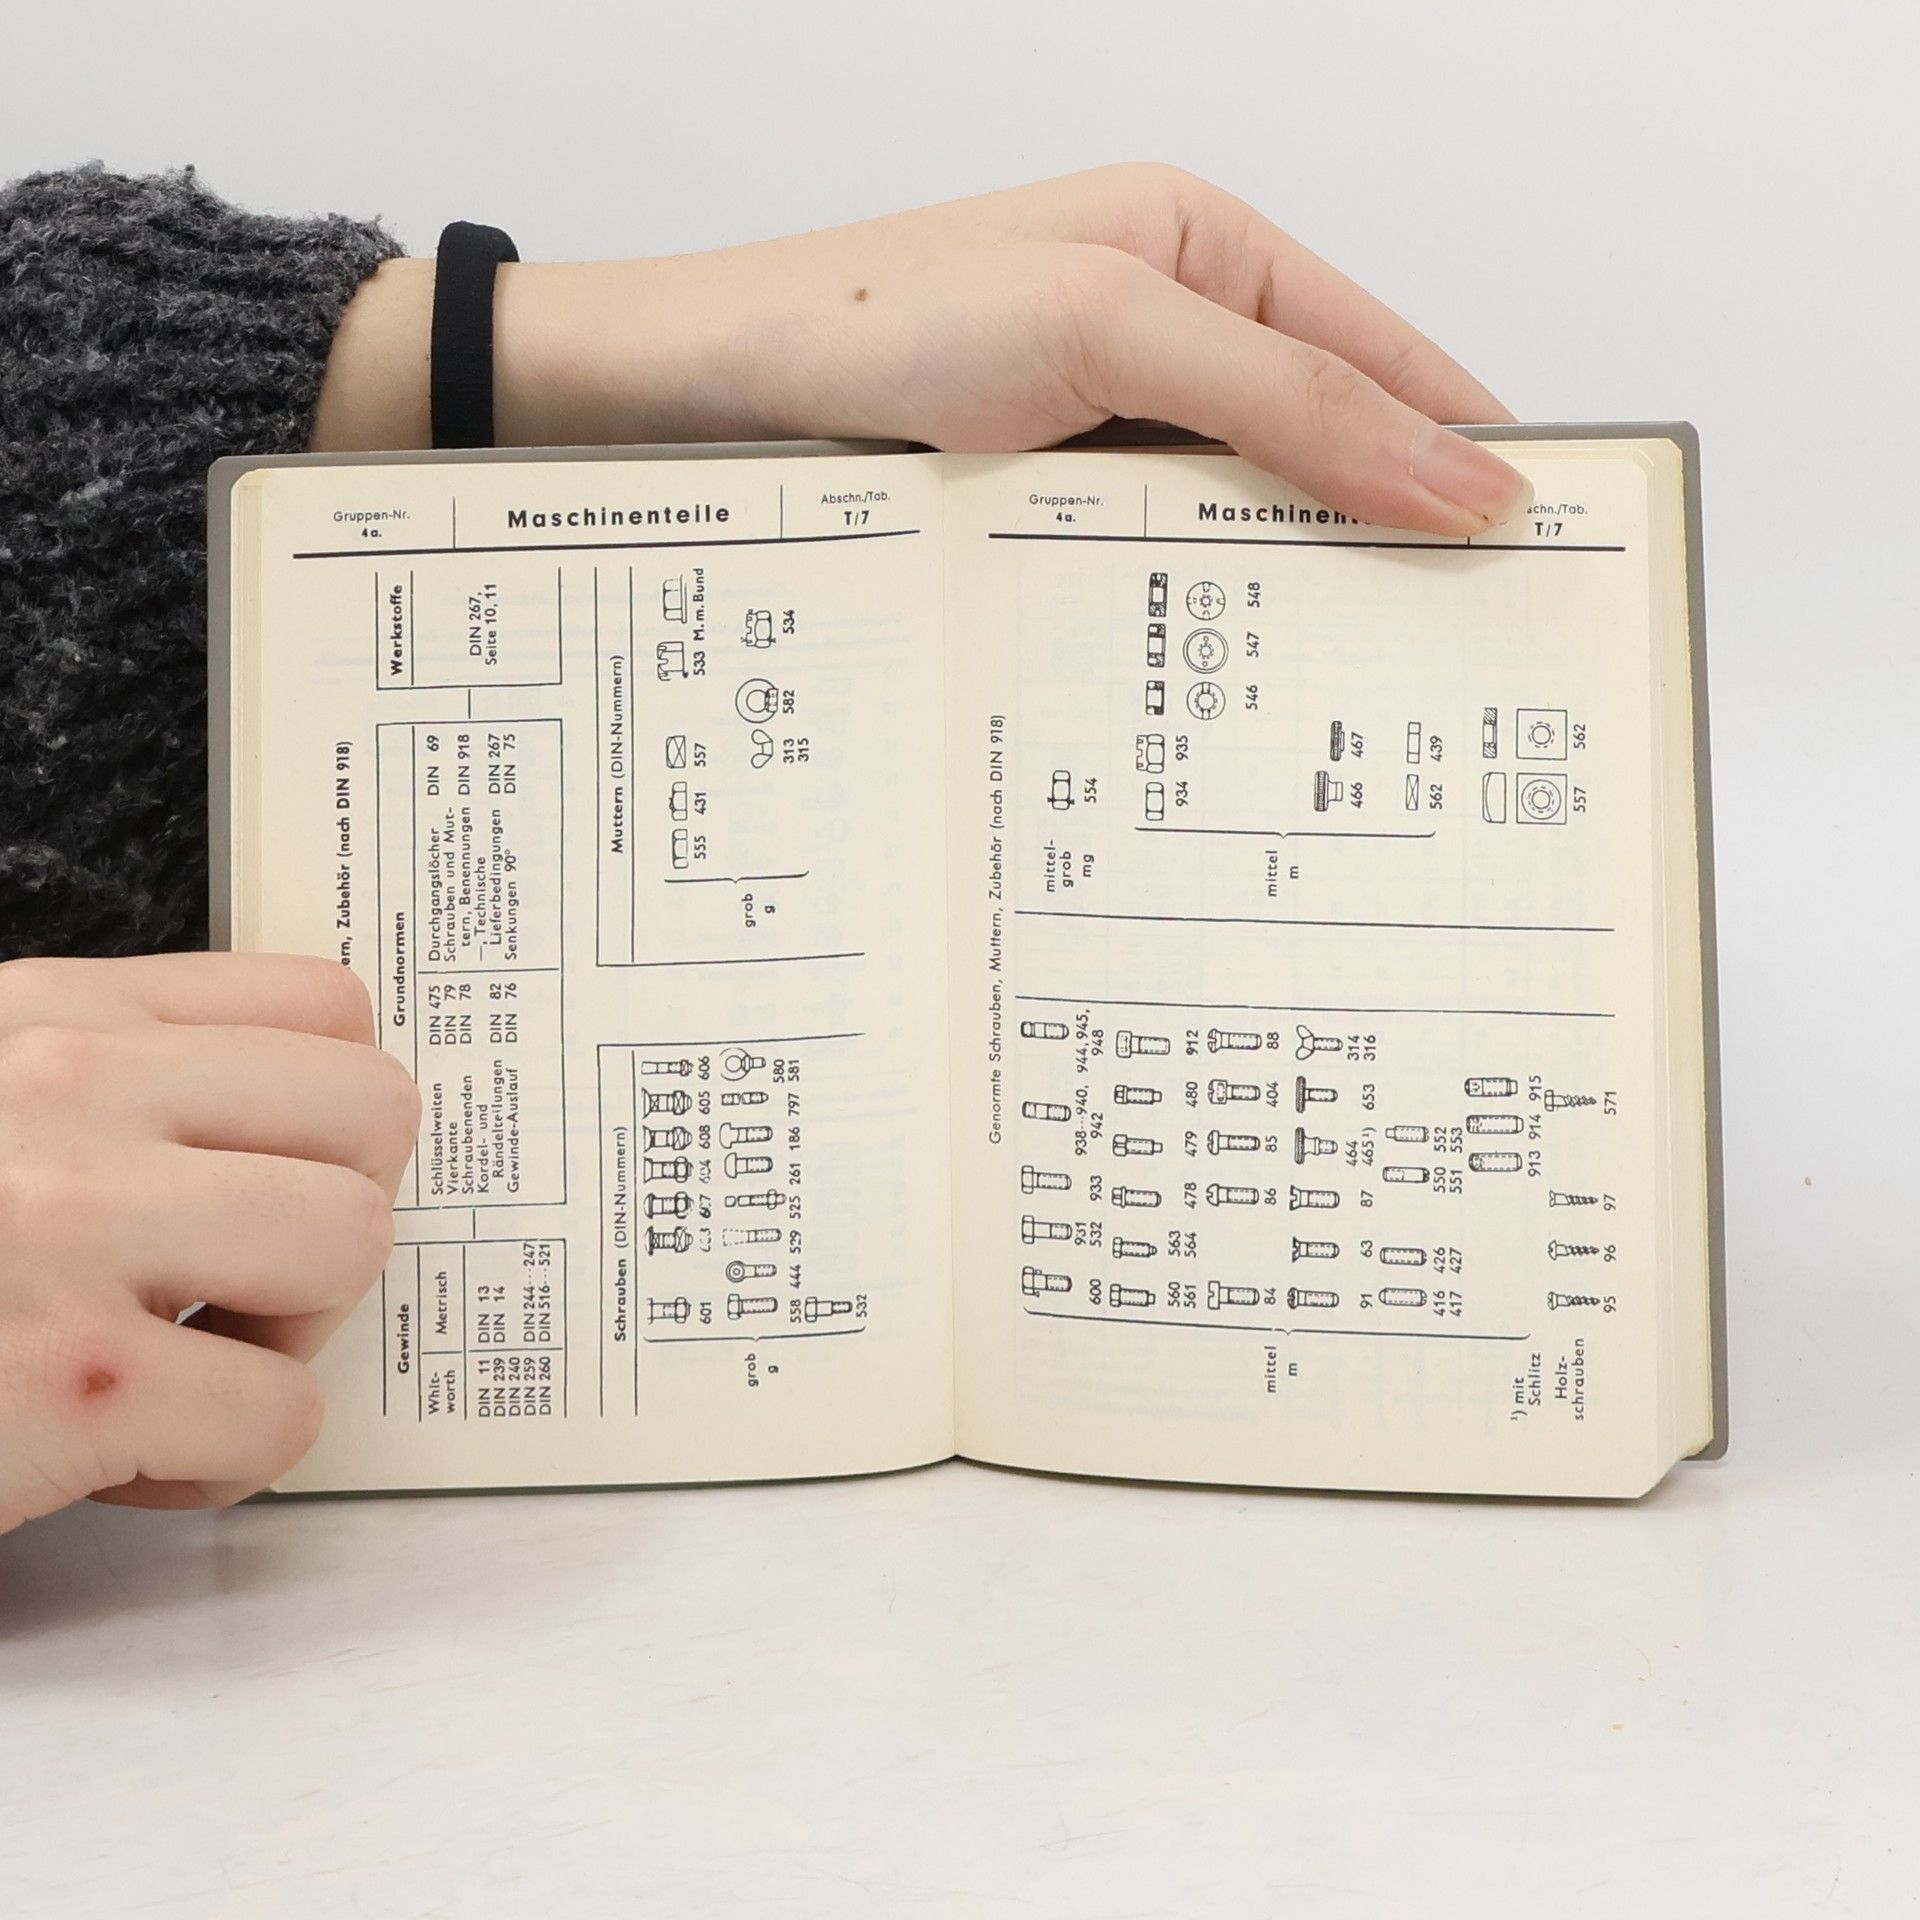 Gruppen-Nr.
4a.
Maschinenteile
Abschn./Tab.
T/7
ern, Zubehör (nach DIN 918)
Gewinde
Whit-
worth
Metrisch
DIN 11 DIN 13
DIN 239 DIN 14
DIN 240
DIN 259 DIN 244...247
DIN 260 DIN 516...521
Grundnormen
Schlüsselweiten DIN 475
Vierkante DIN 79
Schraubenenden DIN 78
Kordel- und
Rändelteilungen DIN 82
Gewinde-Auslauf DIN 76
Durchgangslöcher DIN 69
Schrauben und Mut-
tern, Benennungen DIN 918
—, Technische
Lieferbedingungen DIN 267
Senkungen 90° DIN 75
Werkstoffe
DIN 267,
Seite 10, 11
Schrauben (DIN-Nummern)
grob
g
601 607 604 608 605 606
558 444 529 525 261 186 797 580
581
532
Muttern (DIN-Nummern)
grob
g
555 431 557 533 M. m. Bund
313 582 534
315
Gruppen-Nr.
4a.
schn./Tab.
T/7
Genormte Schrauben, Muttern, Zubehör (nach DIN 918)
mittel
m
600 931 933 938...940, 944, 945,
532 942 948
560 563 478 479 480 912
561 564
84 86 85 404 88
91 63 87 464 653 314
465¹) 316
416 426 550 552
417 427 551 553
913 914 915
¹) mit
Schlitz
Holz-
schrauben
95 96 97 571
mittel-
grob
mg
554
mittel
m
934 935 546 547 548
466 467
562 439
557 562